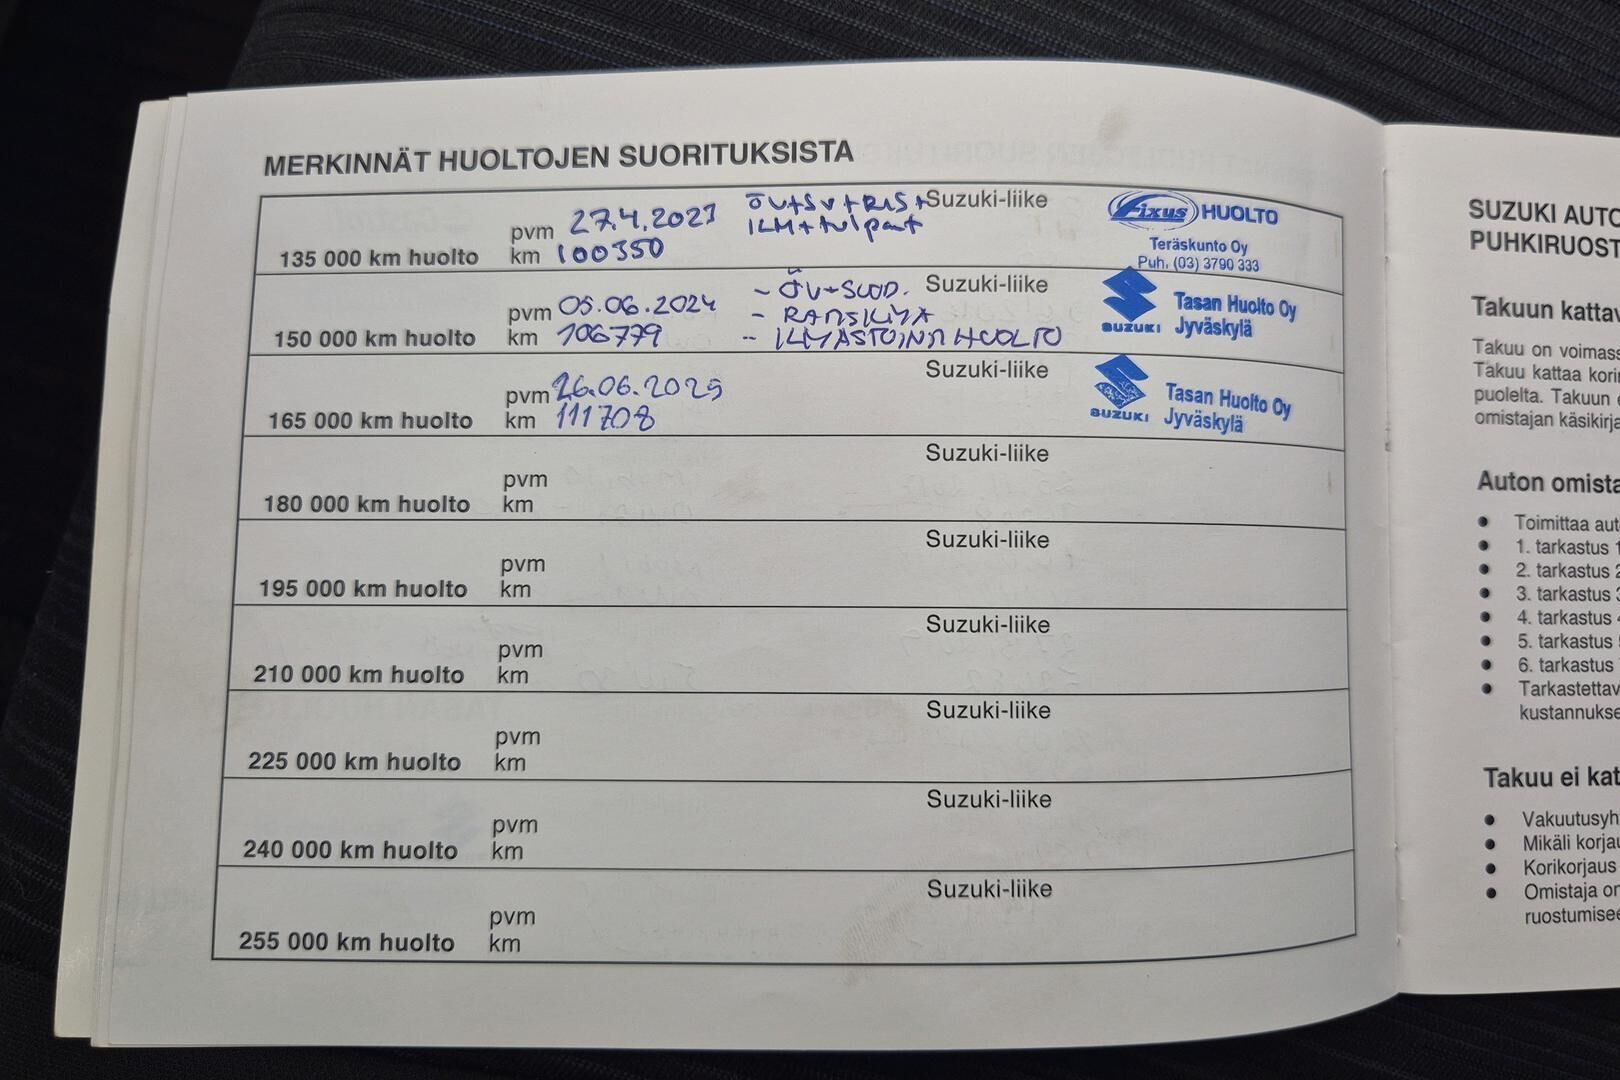 MERKINNÄT HUOLTOJEN SUORITUKSISTA
135 000 km huolto pvm 27.4.2023 ÖV+SV+RAS+ Suzuki-liike
km 100350 ILM+tulpat
Fixus HUOLTO
Teräskunto Oy
Puh. (03) 3790 333
150 000 km huolto pvm 05.06.2024 - ÖV+SUOD. Suzuki-liike
km 106779 - RAITISILMA
- ILMASTOINNIN HUOLTO
SUZUKI Tasan Huolto Oy
Jyväskylä
165 000 km huolto pvm 26.06.2025 Suzuki-liike
km 111708
SUZUKI Tasan Huolto Oy
Jyväskylä
180 000 km huolto pvm Suzuki-liike
km
195 000 km huolto pvm Suzuki-liike
km
210 000 km huolto pvm Suzuki-liike
km
225 000 km huolto pvm Suzuki-liike
km
240 000 km huolto pvm Suzuki-liike
km
255 000 km huolto pvm Suzuki-liike
km
SUZUKI AUTO
PUHKIRUOST
Takuun kattav
Takuu on voimass
Takuu kattaa korin
puolelta. Takuun e
omistajan käsikirja
Auton omista
• Toimittaa aut
• 1. tarkastus 1
• 2. tarkastus 2
• 3. tarkastus 3
• 4. tarkastus 4
• 5. tarkastus 5
• 6. tarkastus 7
• Tarkastettav
kustannukse
Takuu ei kat
• Vakuutusyh
• Mikäli korjau
• Korikorjaus
• Omistaja on
ruostumisee